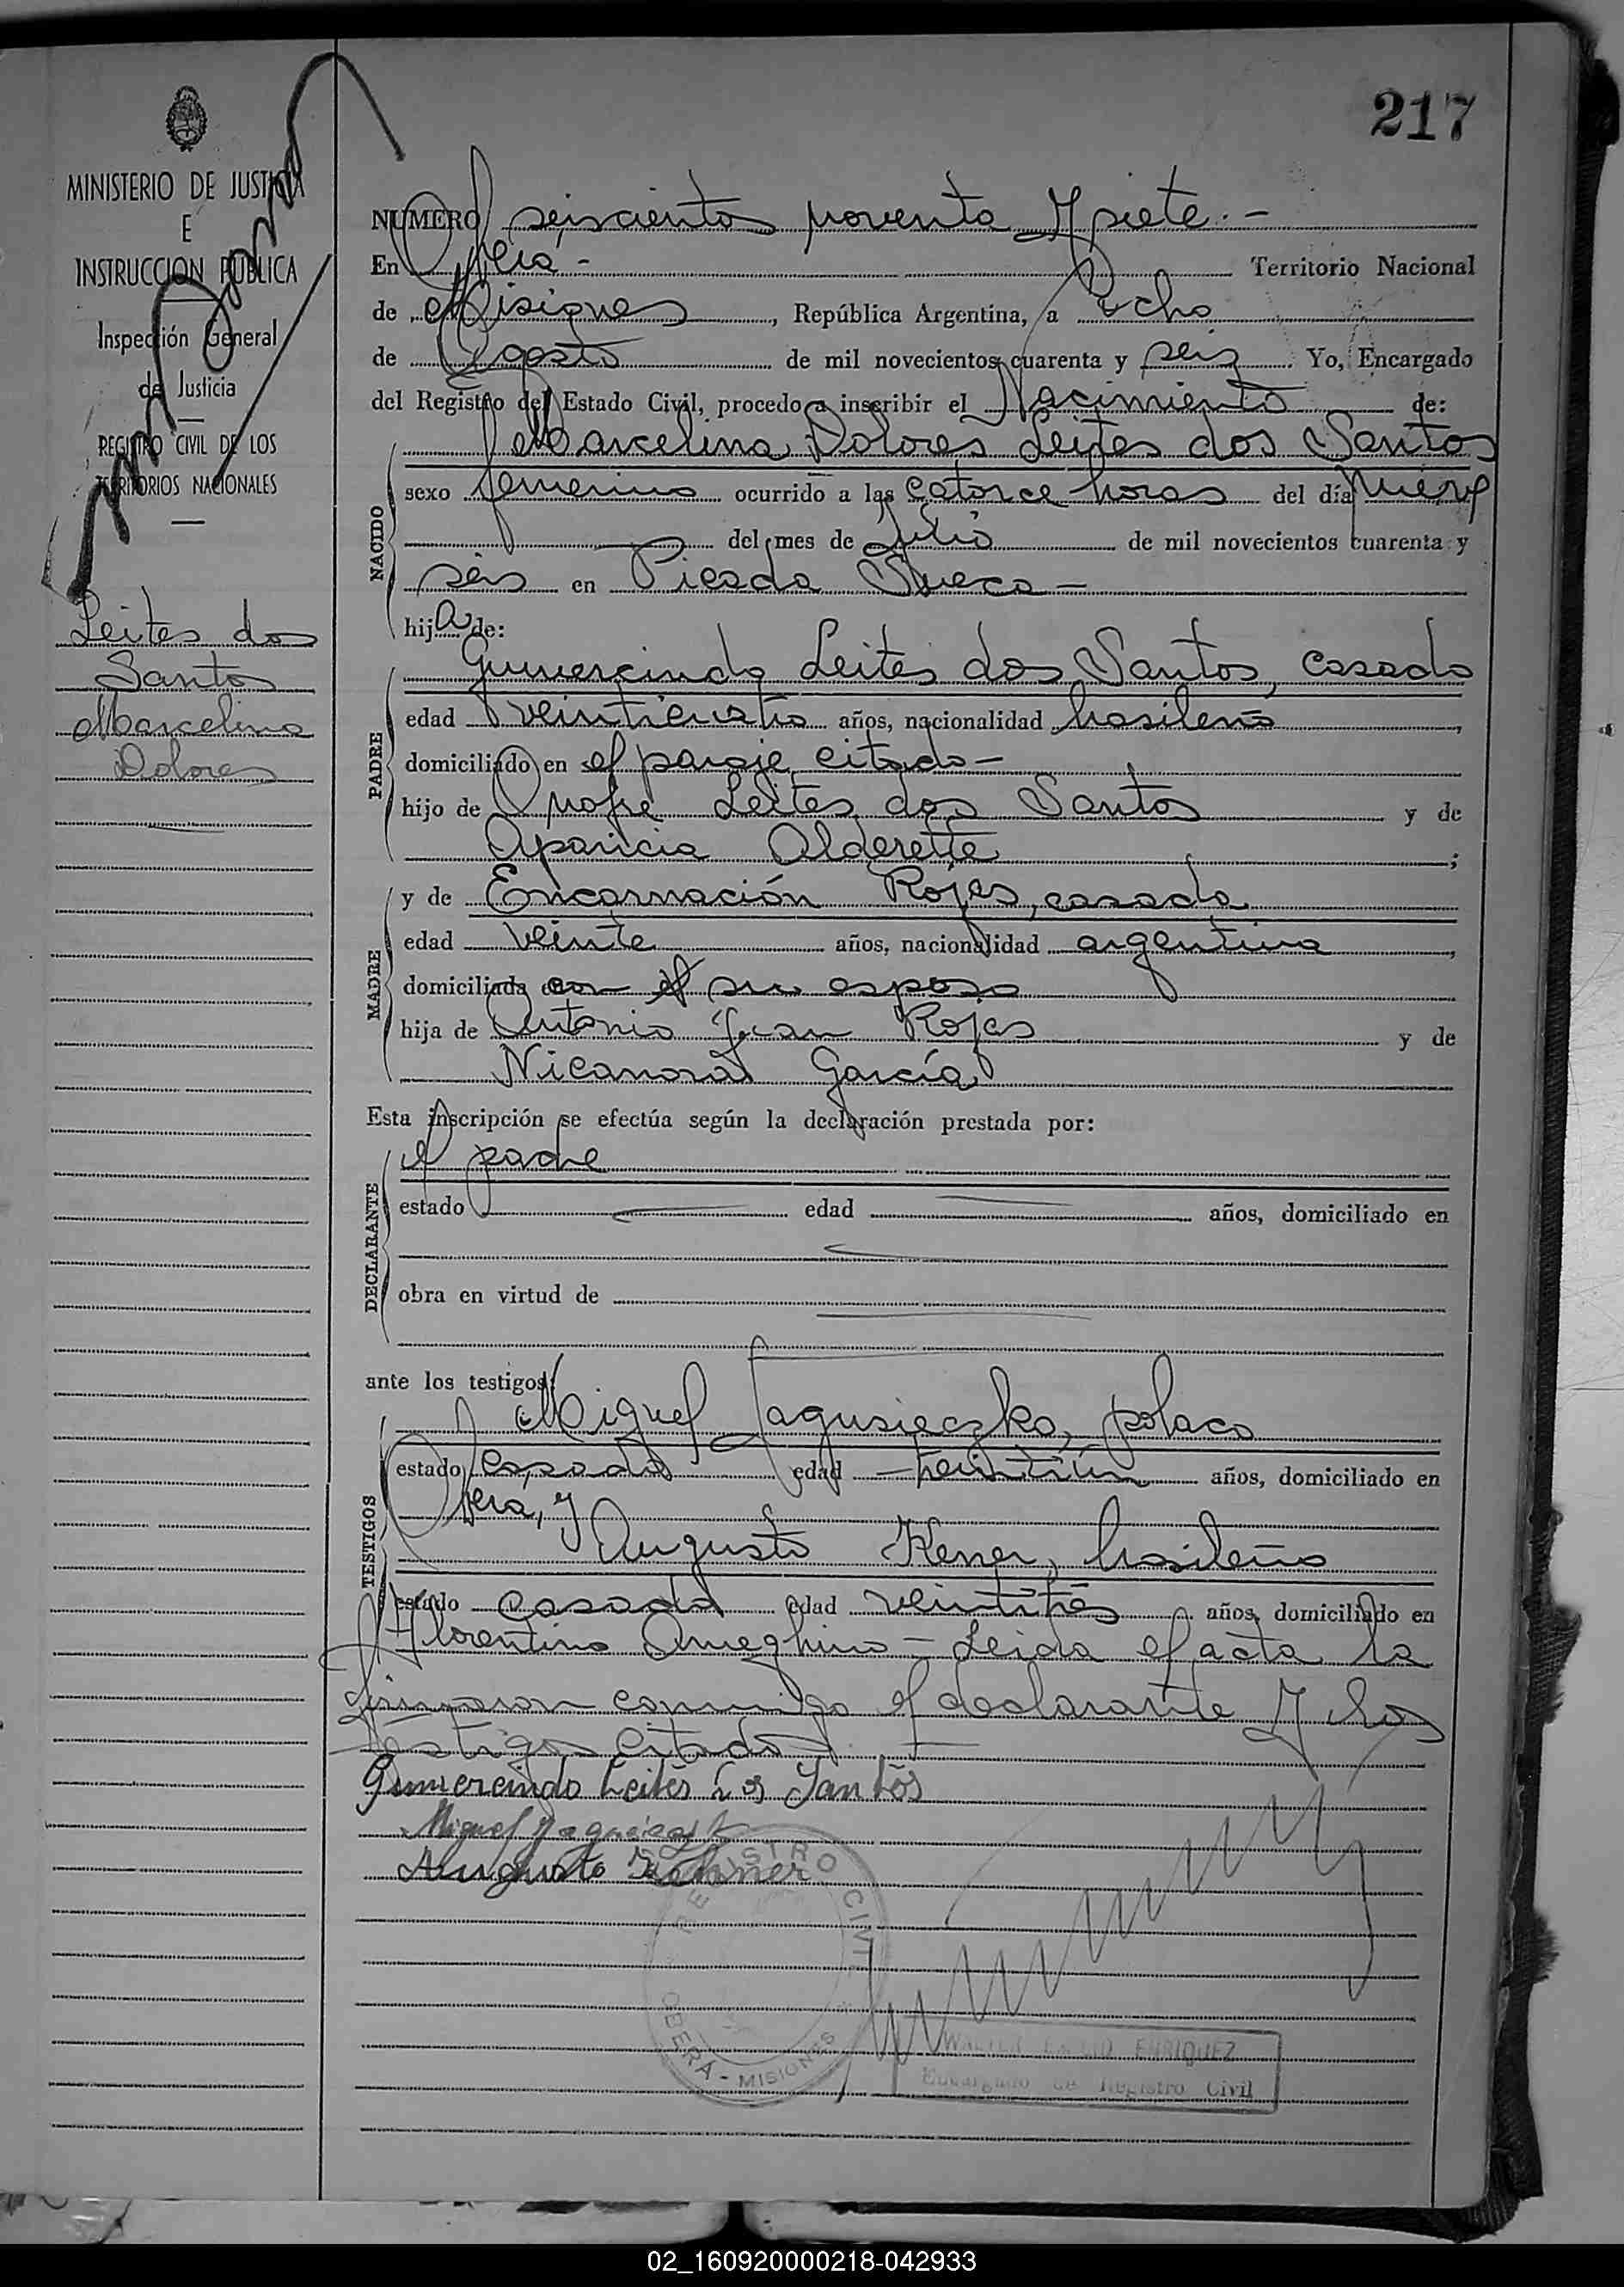 217
MINISTERIO DE JUSTICIA
E
INSTRUCCION PUBLICA
Inspección General
de Justicia
REGISTRO CIVIL DE LOS
TERRITORIOS NACIONALES
Leites dos
Santos
Marcelina
Dolores
NUMERO seiscientos noventa y siete.-
En Oberá- Territorio Nacional
de Misiones, República Argentina, a ocho
de Agosto de mil novecientos cuarenta y seis. Yo, Encargado
del Registro del Estado Civil, procedo a inscribir el Nacimiento de:
NACIDO
Marcelina Dolores Leites dos Santos
sexo femenino ocurrido a las catorce horas del día nueve
del mes de Julio de mil novecientos cuarenta y
seis en Picada Sueca-
hija de:
PADRE
Gumercindo Leites dos Santos, casado
edad veinticuatro años, nacionalidad brasileña,
domiciliado en el paraje citado-
hijo de Onofre Leites dos Santos y de
Aparicia Alderette;
MADRE
y de Encarnación Rojas, casada
edad veinte años, nacionalidad argentina,
domiciliada con su esposo
hija de Antonio Juan Rojas y de
Nicanora García
Esta inscripción se efectúa según la declaración prestada por:
DECLARANTE
el padre
estado edad años, domiciliado en
obra en virtud de
ante los testigos:
TESTIGOS
Miguel Jagusieczko, polaco
estado casado edad treintiún años, domiciliado en
Oberá, y
Augusto Kener, brasileño
estado casado edad veintitrés años, domiciliado en
Florentino Ameghino - Leida el acta la
firmaron conmigo el declarante y los
testigos citados.
Gumercindo Leites dos Santos
Miguel
Augusto
REGISTRO CIVIL
OBERÁ - MISIONES
ENRIQUEZ
Encargado de Registro Civil
02_160920000218-042933